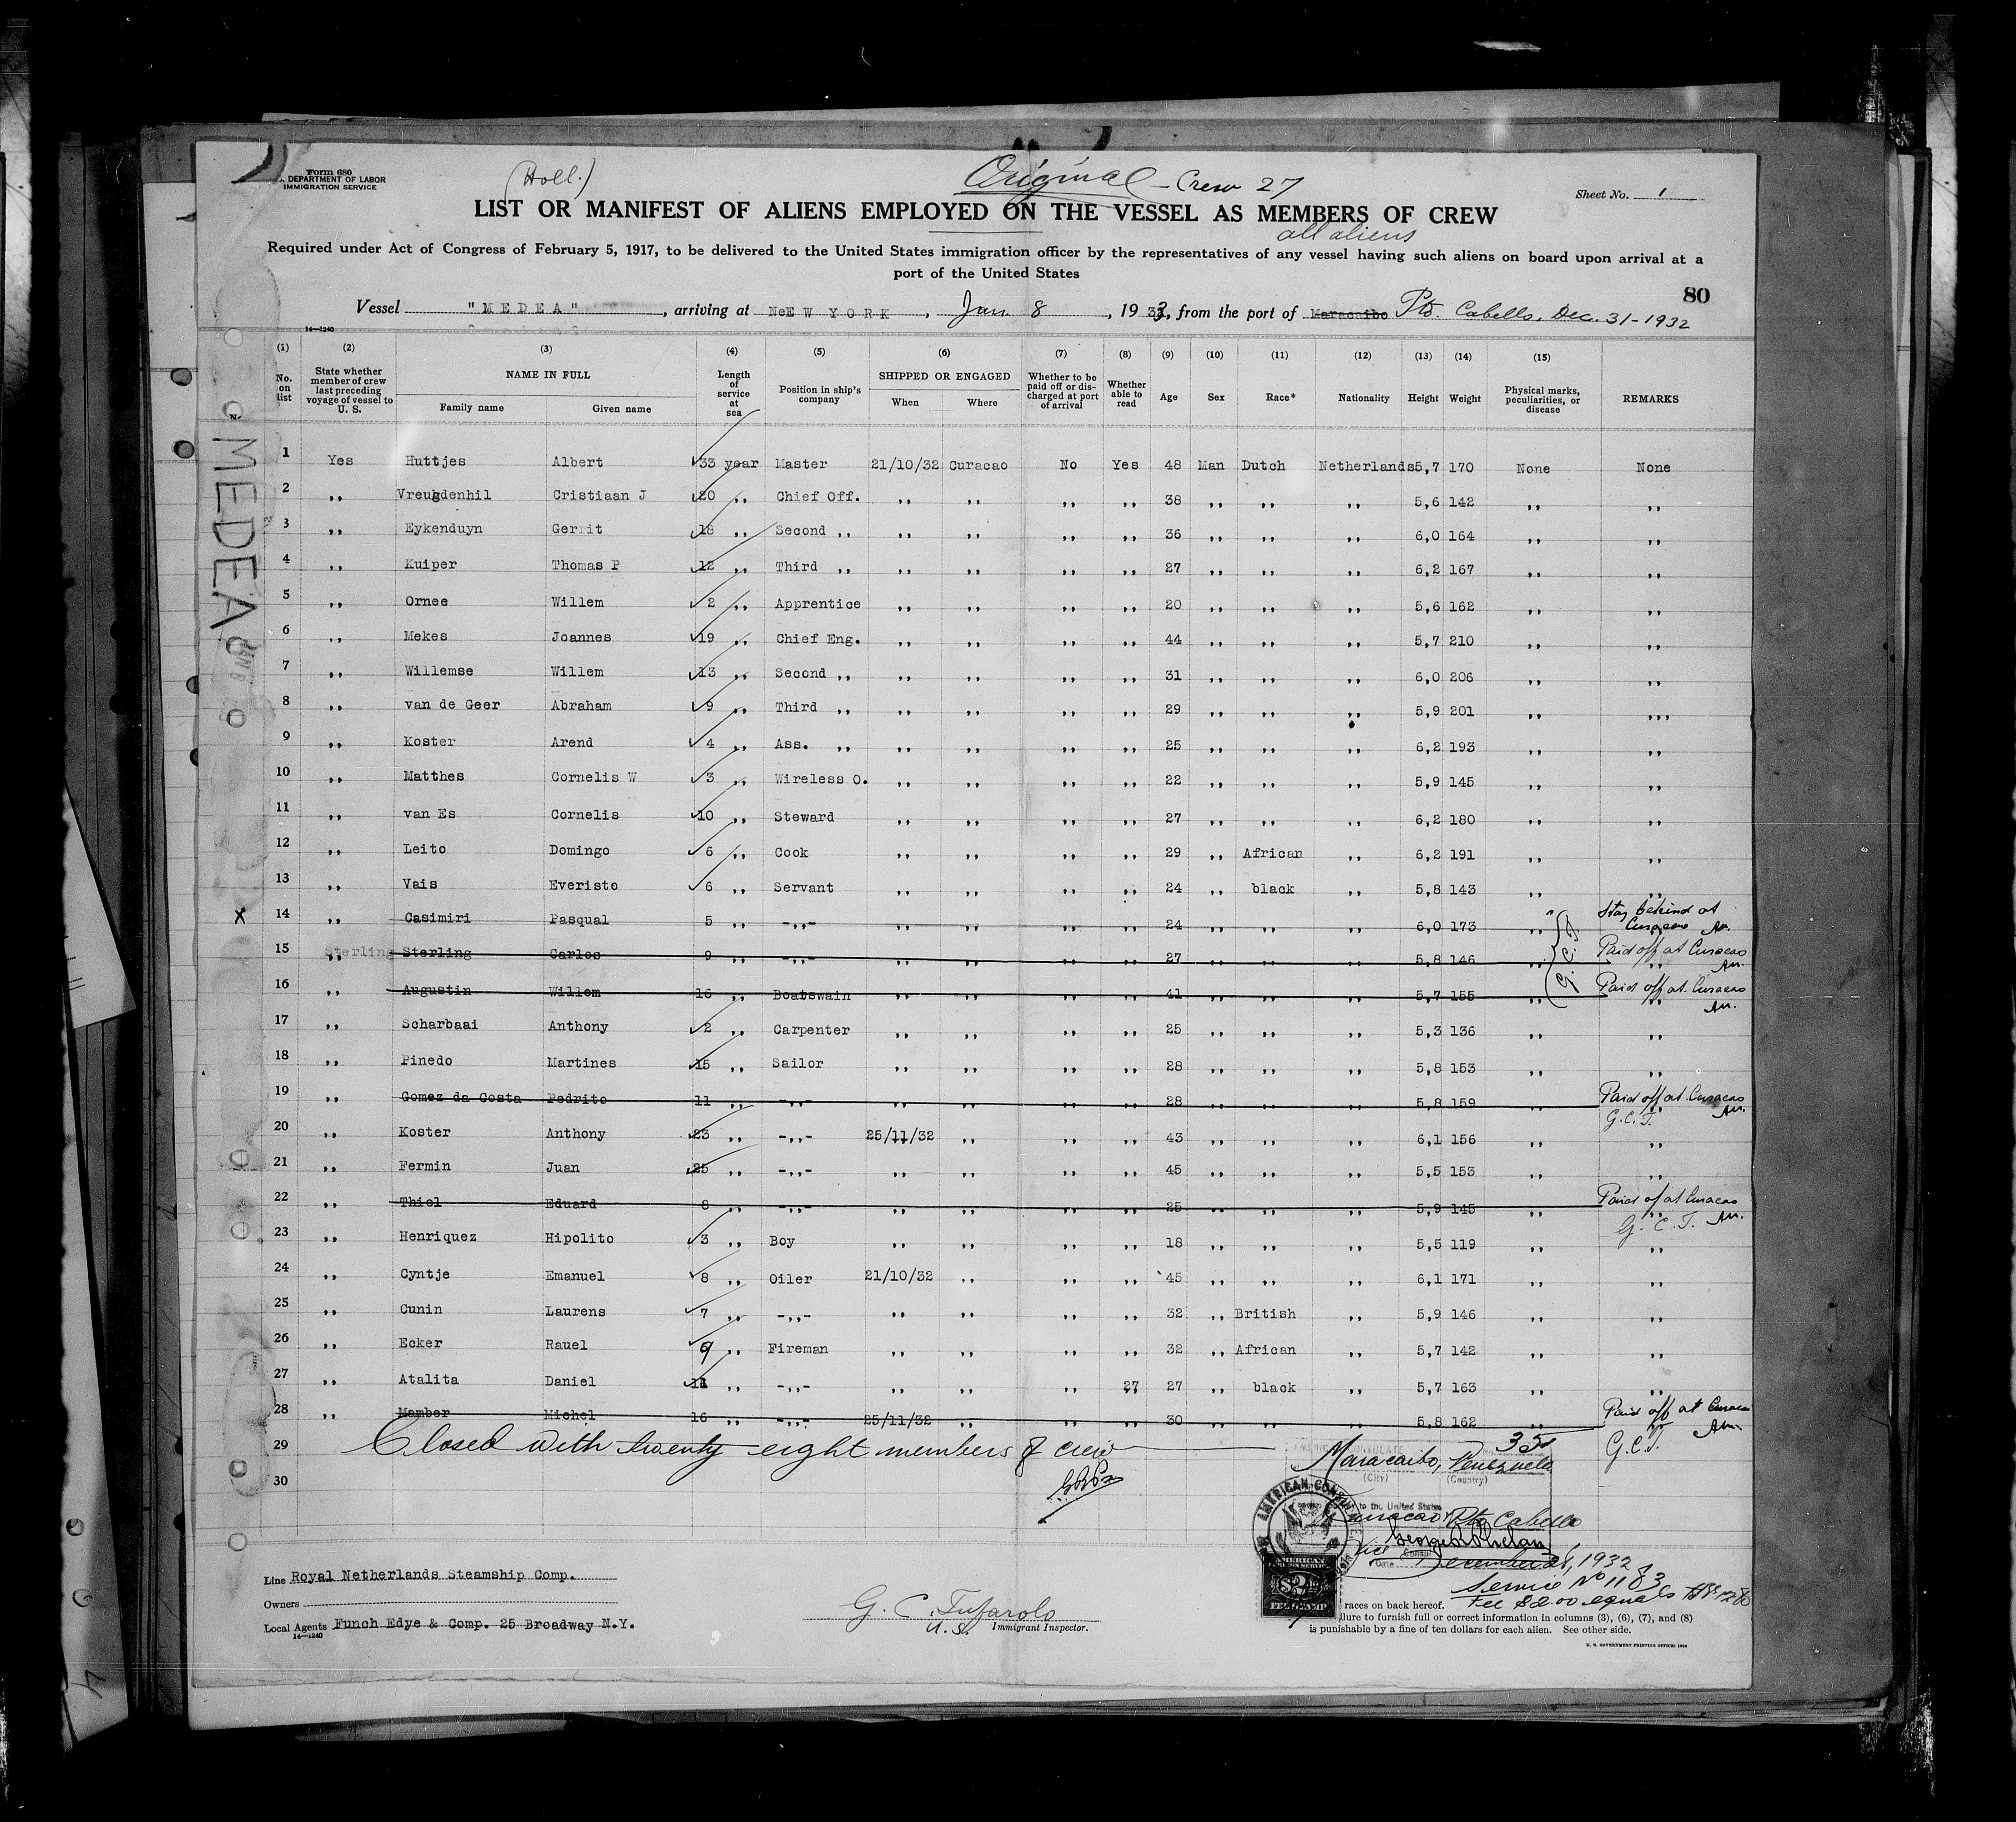 Form 680
DEPARTMENT OF LABOR
IMMIGRATION SERVICE
(Holl.)
Original - Crew 27
Sheet No. 1
LIST OR MANIFEST OF ALIENS EMPLOYED ON THE VESSEL AS MEMBERS OF CREW
all aliens
Required under Act of Congress of February 5, 1917, to be delivered to the United States immigration officer by the representatives of any vessel having such aliens on board upon arrival at a
port of the United States
80
Vessel "MEDEA", arriving at NeEW YORK, Jan 8, 1933, from the port of Maracaibo Pto. Cabello, Dec. 31-1932
14-1240
(1) (2) (3) (4) (5) (6) (7) (8) (9) (10) (11) (12) (13) (14) (15)
No. on list State whether member of crew last preceding voyage of vessel to U. S. NAME IN FULL Family name Given name Length of service at sea Position in ship's company SHIPPED OR ENGAGED When Where Whether to be paid off or discharged at port of arrival Whether able to read Age Sex Race* Nationality Height Weight Physical marks, peculiarities, or disease REMARKS
MEDEA
1 Yes Huttjes Albert 33 year Master 21/10/32 Curacao No Yes 48 Man Dutch Netherlands 5,7 170 None None
2 ,, Vreugdenhil Cristiaan J 20 ,, Chief Off. ,, ,, ,, ,, 38 ,, ,, ,, 5,6 142 ,, ,,
3 ,, Eykenduyn Gerrit 18 ,, Second ,, ,, ,, ,, ,, 36 ,, ,, ,, 6,0 164 ,, ,,
4 ,, Kuiper Thomas P 12 ,, Third ,, ,, ,, ,, ,, 27 ,, ,, ,, 6,2 167 ,, ,,
5 ,, Ornee Willem 2 ,, Apprentice ,, ,, ,, ,, 20 ,, ,, ,, 5,6 162 ,, ,,
6 ,, Mekes Joannes 19 ,, Chief Eng. ,, ,, ,, ,, 44 ,, ,, ,, 5,7 210 ,, ,,
7 ,, Willemse Willem 13 ,, Second ,, ,, ,, ,, ,, 31 ,, ,, ,, 6,0 206 ,, ,,
8 ,, van de Geer Abraham 9 ,, Third ,, ,, ,, ,, ,, 29 ,, ,, ,, 5,9 201 ,, ,,,
9 ,, Koster Arend 4 ,, Ass. ,, ,, ,, ,, ,, 25 ,, ,, ,, 6,2 193 ,, ,,
10 ,, Matthes Cornelis W 3 ,, Wireless O. ,, ,, ,, ,, 22 ,, ,, ,, 5,9 145 ,, ,,
11 ,, van Es Cornelis 10 ,, Steward ,, ,, ,, ,, 27 ,, ,, ,, 6,2 180 ,, ,,
12 ,, Leito Domingo 6 ,, Cook ,, ,, ,, ,, 29 ,, African ,, 6,2 191 ,, ,,
13 ,, Vais Everisto 6 ,, Servant ,, ,, ,, ,, 24 ,, black ,, 5,8 143 ,, ,,
X 14 ,, Casimiri Pasqual 5 ,, -,,- ,, ,, ,, ,, 24 ,, ,, ,, 6,0 173 ,, Stay behind at Curacao
15 Sterling ,, Sterling Carlos 9 ,, -,,- ,, ,, ,, ,, 27 ,, ,, ,, 5,8 146 ,, G.C.T. Paid off at Curacao
16 ,, Augustin Willem 16 ,, Boatswain ,, ,, ,, ,, 41 ,, ,, ,, 5,7 155 ,, Paid off at Curacao
17 ,, Scharbaai Anthony 2 ,, Carpenter ,, ,, ,, ,, 25 ,, ,, ,, 5,3 136 ,, ,,
18 ,, Pinedo Martines 15 ,, Sailor ,, ,, ,, ,, 28 ,, ,, ,, 5,8 153 ,, ,,
19 ,, Gomez da Costa Pedrito 11 ,, -,,- ,, ,, ,, ,, 28 ,, ,, ,, 5,8 159 ,, Paid off at Curacao G.C.T.
20 ,, Koster Anthony 23 ,, -,,- 25/11/32 ,, ,, ,, 43 ,, ,, ,, 6,1 156 ,, ,,
21 ,, Fermin Juan 25 ,, -,,- ,, ,, ,, ,, 45 ,, ,, ,, 5,5 153 ,, ,,
22 ,, Thiel Eduard 8 ,, -,,- ,, ,, ,, ,, 25 ,, ,, ,, 5,9 145 ,, Paid off at Curacao G.C.T.
23 ,, Henriquez Hipolito 3 ,, Boy ,, ,, ,, ,, 18 ,, ,, ,, 5,5 119 ,, ,,
24 ,, Cyntje Emanuel 8 ,, Oiler 21/10/32 ,, ,, ,, 45 ,, ,, ,, 6,1 171 ,, ,,
25 ,, Cunin Laurens 7 ,, -,,- ,, ,, ,, ,, 32 ,, British ,, 5,9 146 ,, ,,
26 ,, Ecker Rauel 9 ,, Fireman ,, ,, ,, ,, 32 ,, African ,, 5,7 142 ,, ,,
27 ,, Atalita Daniel 11 ,, -,,- ,, ,, ,, 27 27 ,, black ,, 5,7 163 ,, ,,
28 ,, Mamber Michel 16 ,, -,,- 25/11/32 ,, ,, ,, 30 ,, ,, ,, 5,8 162 ,, Paid off at Curacao G.C.T.
29 Closed with twenty-eight members of crew
30
35
AMERICAN CONSULATE
Maracaibo, Venezuela
(City) (Country)
to the United States
Curacao Pto Cabello
George R. Phelan
Vice Consul
Date December 1, 1932
Service No 1183
Fee $2.00 equals
AMERICAN CONSULATE
AMERICAN FOREIGN SERVICE $2 FEE STAMP
Line Royal Netherlands Steamship Comp.
Owners
Local Agents Funch Edye & Comp. 25 Broadway N.Y.
14-1240
G. C. Tufarolo
U.S. Immigrant Inspector.
races on back hereof.
lure to furnish full or correct information in columns (3), (6), (7), and (8)
is punishable by a fine of ten dollars for each alien. See other side.
U. S. GOVERNMENT PRINTING OFFICE